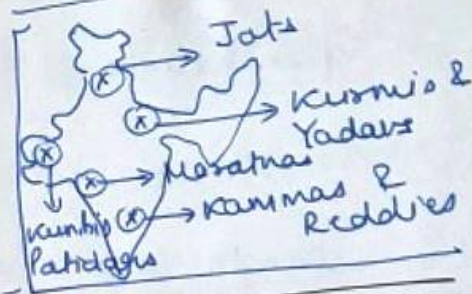 Jats
Kurmis &
Yadavs
Marathas
Kammas &
Reddies
Kunbis
Patidars